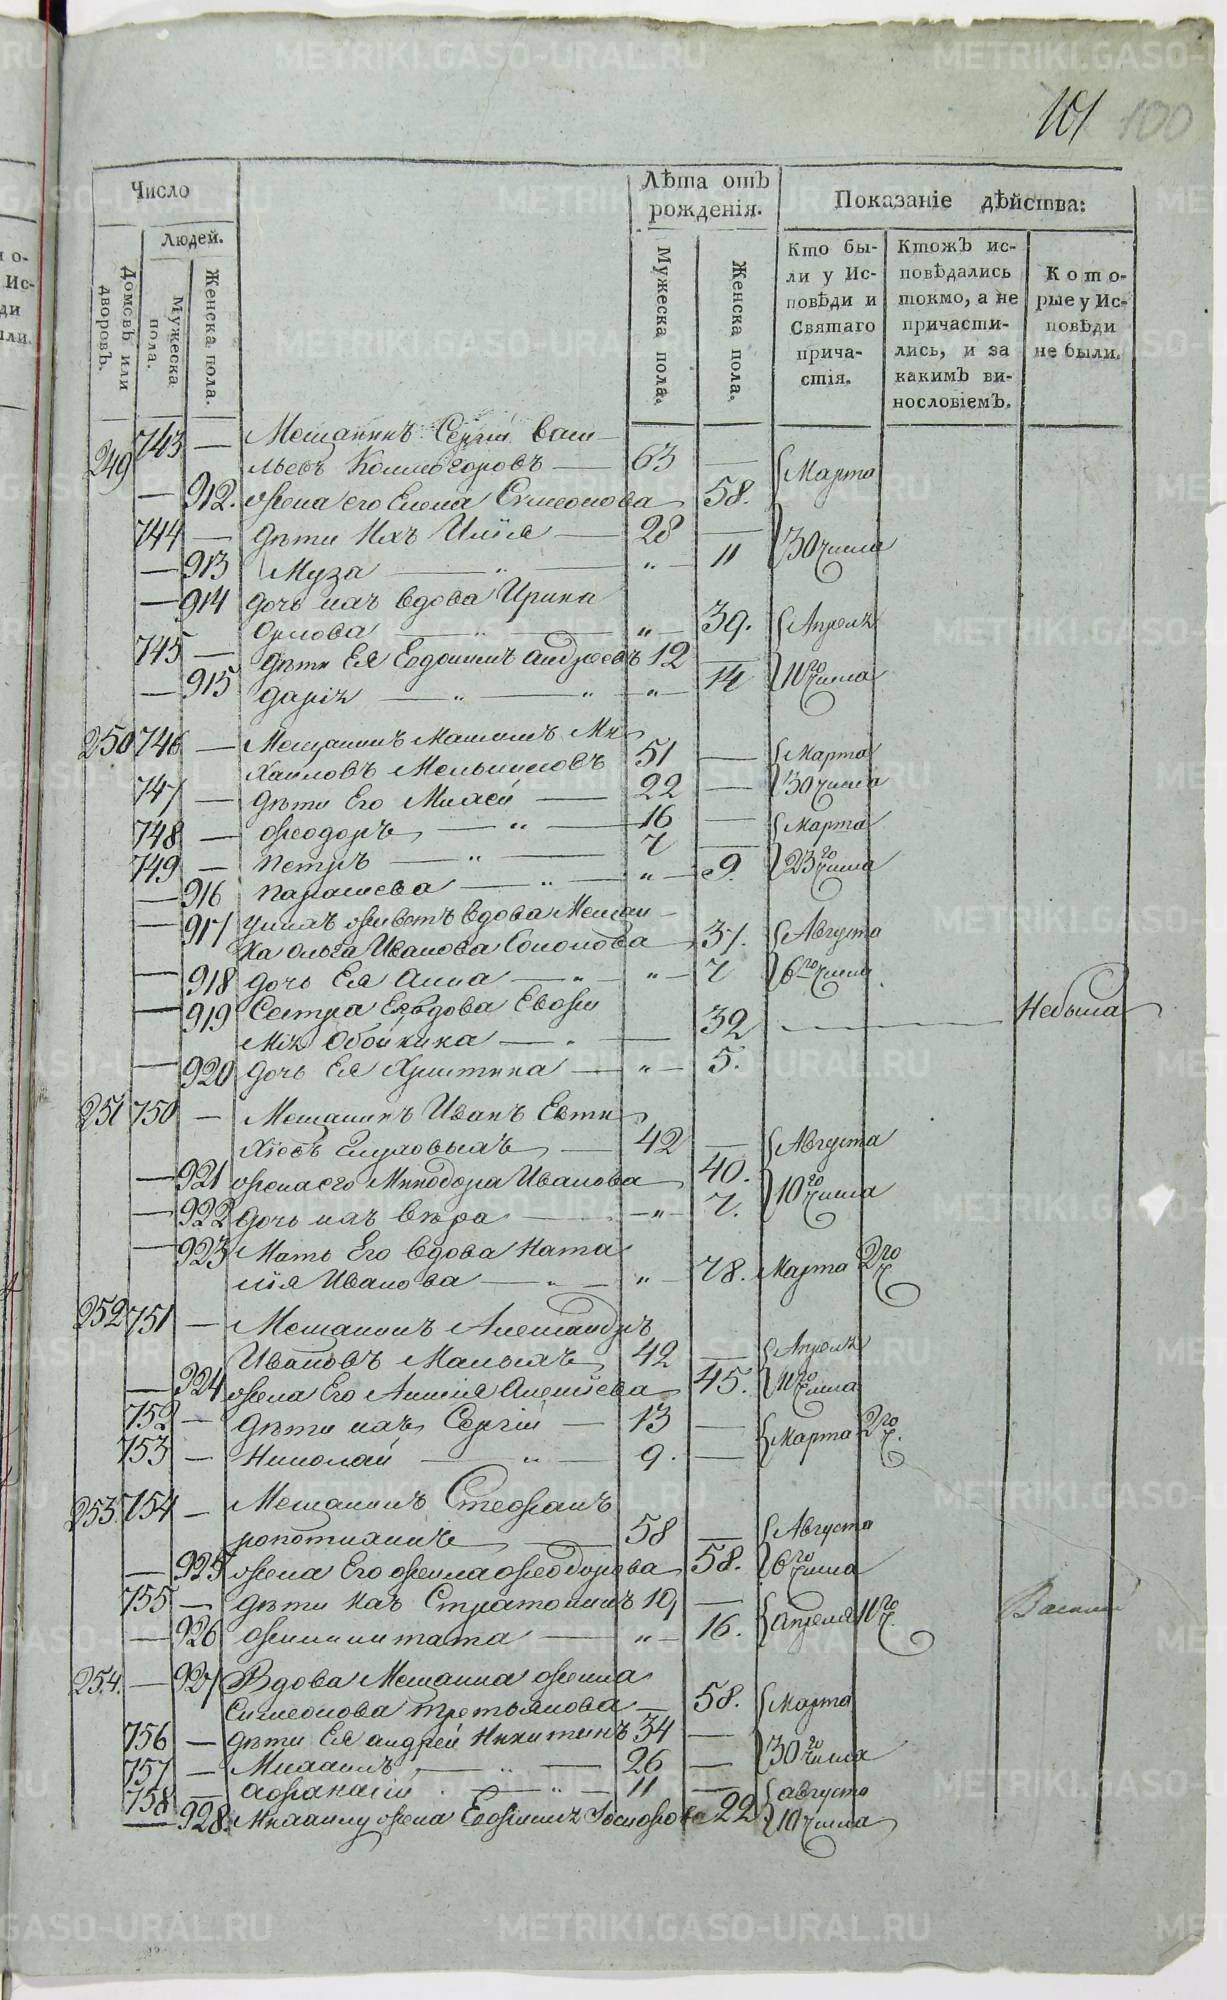 101 100
Число
Лѣта отъ рожденія.
Показаніе дѣйства:
Людей.
Домовъ или дворовъ.
Мужеска пола.
Женска пола.
Мужеска пола.
Женска пола.
Кто были у Исповѣди и Святаго причастія.
Ктожъ исповѣдались токмо, а не причастились, и за какимъ винословіемъ.
Которые у Исповѣди не были.
249 743 — Мещанинъ Сергій Васи
льевъ Колмогоровъ — 63 — Марта
— 912. жена его Елена Симеонова 58.
744 — дѣти Ихъ Илія — 28 — 30 числа
— 913 Муза — „ — „ — 11
— 914 дочь ихъ вдова Ирина
Орлова — „ — „ 39. Апреля
745 — дѣти Ея Евдокимъ Андреевъ 12 —
— 915 Дарія — „ — „ — „ — 14 11го числа
250 746 — Мещанинъ Максимъ Ми
хаиловъ Мельниковъ 51 — Марта
747 — дѣти Его Михей — 22 — 30 числа
748 — Феодоръ — „ — 16 — Марта
749 — Петръ — „ — 7 — 23го числа
— 916 Парасева — „ — „ — 9.
— 917 у нихъ живетъ вдова Мещан
ка Ольга Иванова Соколова 37. Августа
— 918 дочь Ея Анна — „ — „ — 7 6го числа
— 919 Сестра Ея вдова Евфи
мія Обойкина — „ — 32 — Небыла
— 920 дочь Ея Христина — „ — 5.
251 750 — Мещанинъ Иванъ Евти
хіевъ Глуховыхъ — 42 — Августа
— 921 жена его Минодора Иванова 40. 10го числа
— 922 дочь ихъ Вѣра — „ — 7.
— 923 Мать Его вдова Ната
лія Иванова — „ — „ — 78. Марта 2го ч
252 751 — Мещанинъ Александръ
Ивановъ Малыхъ 42 — Апреля
— 924 жена Его Анисія Алексіева 45. 11го числа
752 — дѣти ихъ Сергій — 13 — Марта 2го ч.
753 — Николай — „ — 9. —
253. 754 — Мещанинъ Стефанъ
58 — Августа
— 925 жена Его Фекла Феодорова 58. 6го числа
755 — дѣти ихъ Стратоникъ 19 —
— 926 „ — 16. апреля 11го ч.
254. — 927 Вдова Мещанка Фекла
Симеонова Третьякова — 58. Марта
756 — дѣти Ея Андрей Никитинъ 34 —
757 — Михаилъ — „ — 26 — 30го числа
758 — Афанасій — „ — 11 — августа
— 928. Михаилу жена Евфимія 22 10 числа
METRIKI.GASO-URAL.RU